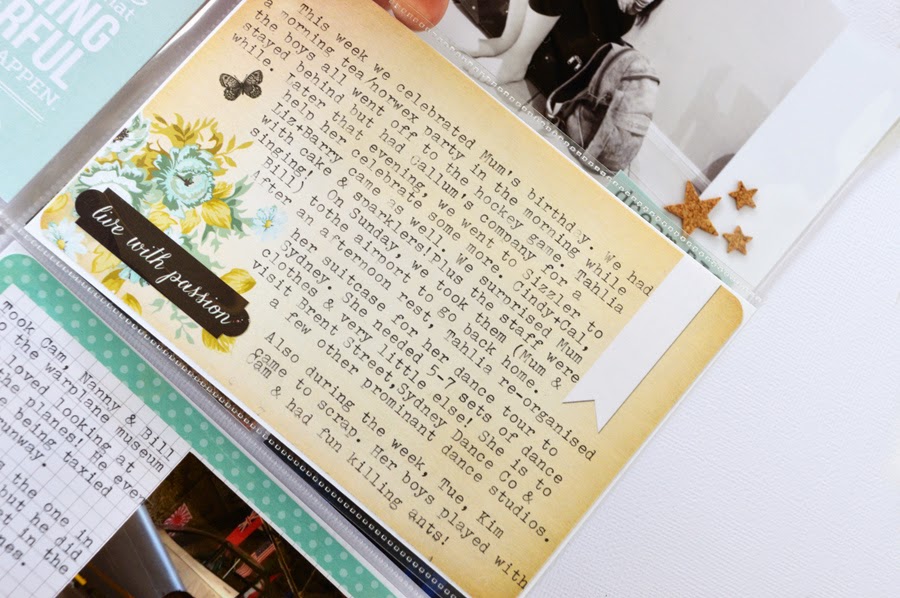 hat
ING
RFUL
APPEN.
This week we celebrated Mum's birthday. We had
a morning tea/norwex party in the morning while
the boys all went off to the hockey game. Tahlia
stayed behind but had Callum's company for a
while.
Later that evening, we went to Sizzler to
help her celebrate some more. Cindy+Cal,
Liz+Barry came as well. We surprised Mum
with cake & sparklers!(plus the staff were
singing!) On Sunday, we took them (Mum &
Bill) tothe airport to go back home.
After an afternoon rest, Tahlia re-organised
her suitcase for her dance tour to
Sydney. She needed 5-7 sets of dance
clothes & very little else! She is to
visit Brent Street,Sydney Dance Co &
a few other prominant dance studios.
Also during the week, Tue, Kim
came to scrap. Her boys played with
Cam & had fun killing ants!
live with passion
Took Cam, Nanny & Bill
to the warplane museum
loved looking at
the planes! He even
being taxied
runway.
the one in
but he did
in the